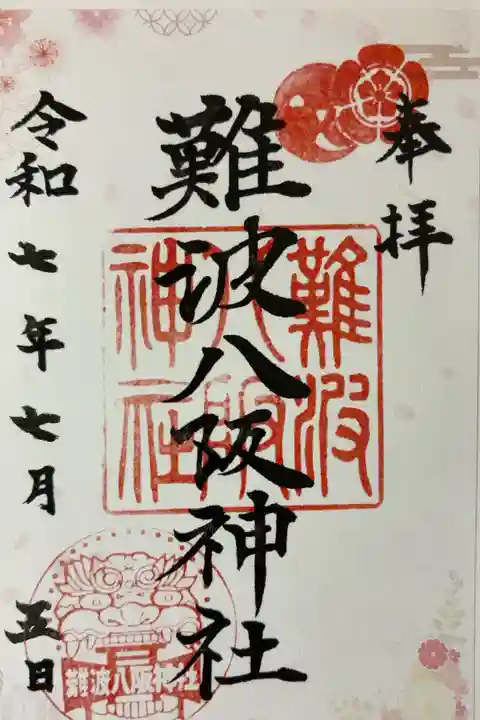 奉拝
難波八阪神社
難波
八阪
神社
令和七年七月五日
難波八阪神社